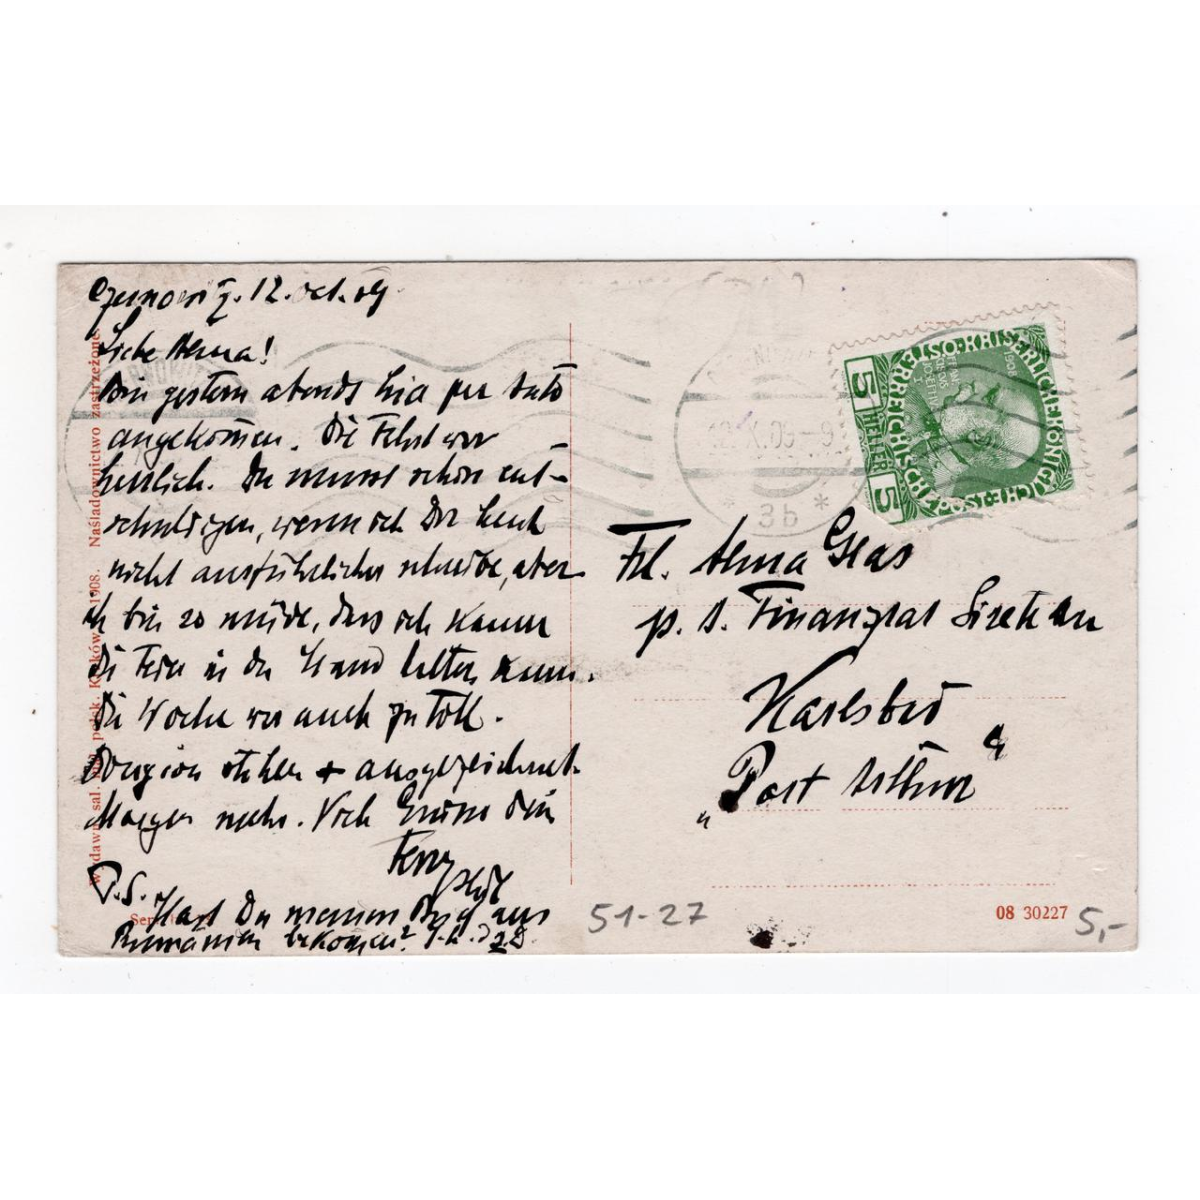 Czernowitz. 12. Oct. 09.
Liebe Alma!
Bin gestern abends hia per Auto
angekommen. Die Fahrt war
herrlich. Du musst schon ent-
schuldigen, wenn ich Dir heut
nicht ausführlicher schreibe, aber
ich bin so müde, dass ich kaum
die Feder in der Hand halten kann.
Die Woche war auch zu toll.
ausgezeichnet.
Morgen mehr. Viele Grüsse Dein
P.S. Hast Du meinen Brief aus
Rumänien bekommen?
Wydawn. sal. mal. polsk. Kraków 1908. Naśladownictwo zastrzeżone.
12.X.09-9
* 3b *
KAISERLICHE KÖNIGLICHE ÖSTERREICHISCHE POST
5 HELLER 5
1908
Frl. Alma Glas
p. A. Finanzrat
Karlsbad
„Port Arthur“
51-27
08 30227
5,-